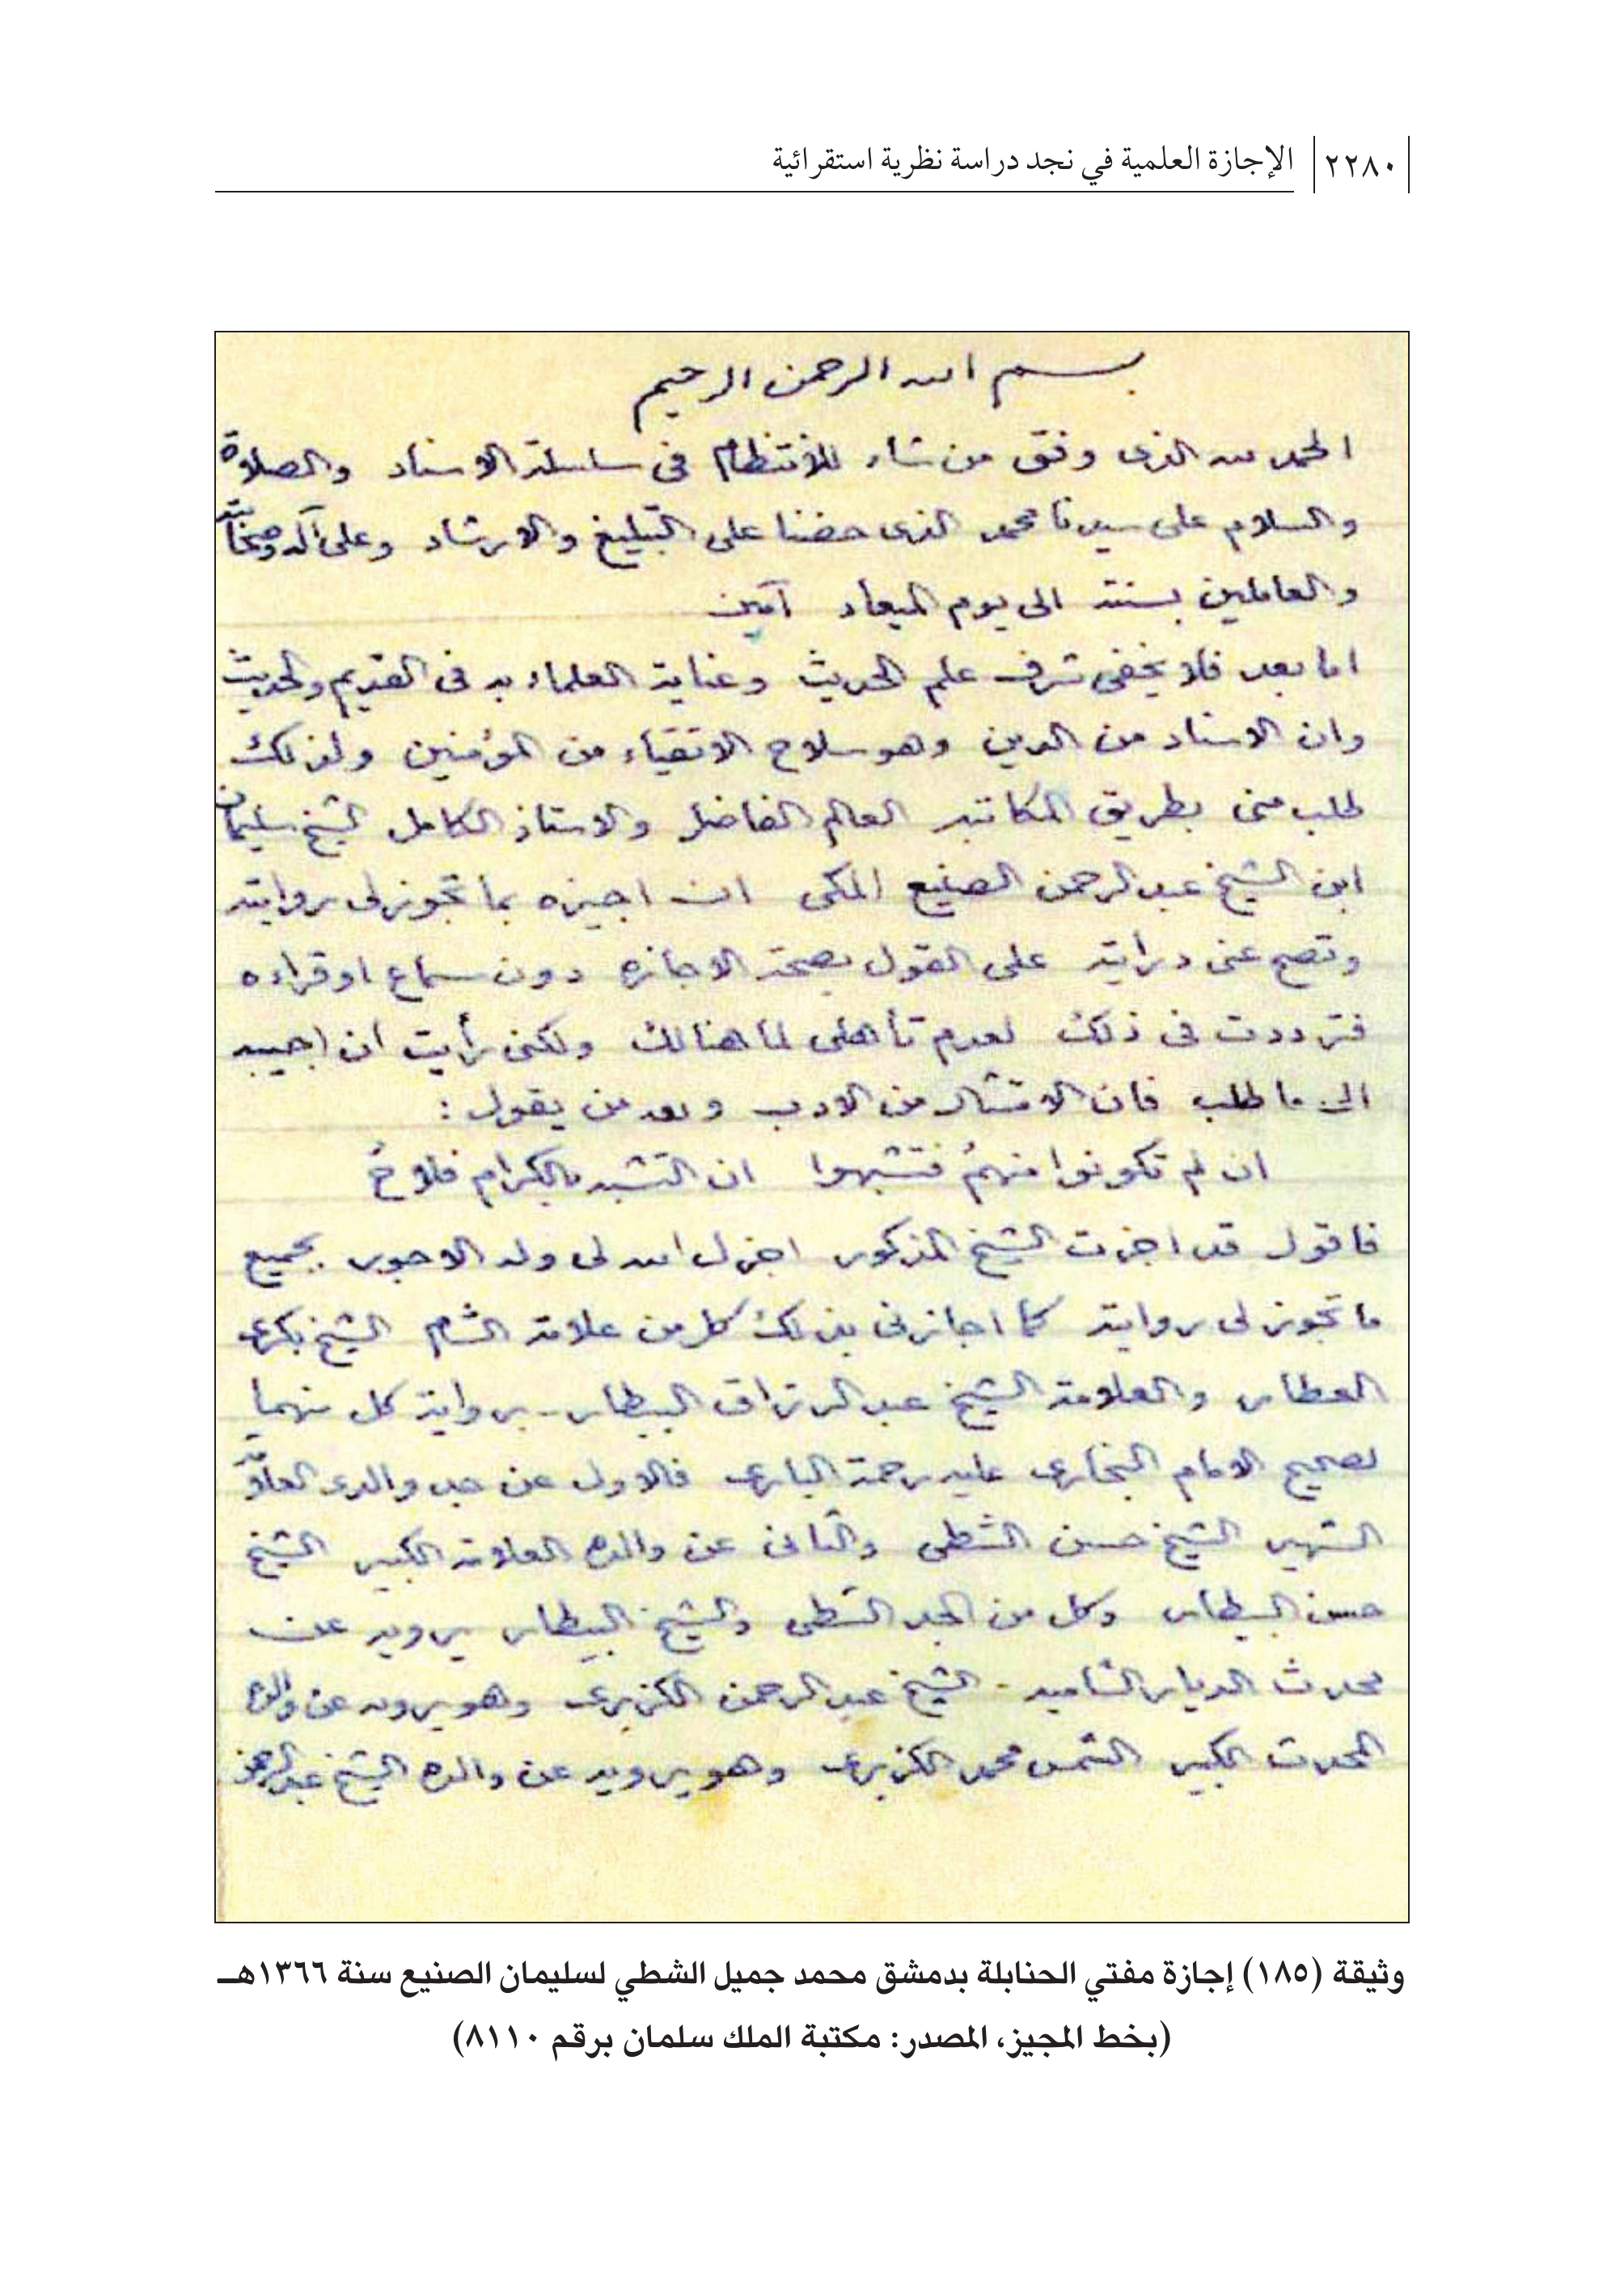 ٢٢٨٠ الإجازة العلمية في نجد دراسة نظرية استقرائية
بسم الله الرحمن الرحيم
الحمد لله الذى وفق من شاء للانتظام فى سلسلة الاسناد والصلاة
والسلام على سيدنا محمد الذى حضنا على التبليغ والارشاد وعلى آله وصحابته
والعاملين بسنته الى يوم الميعاد آمين
اما بعد فلا يخفى شرف علم الحديث وعناية العلماء به فى القديم والحديث
وان الاسناد من الدين وهو سلاح الاتقياء من المؤمنين ولذلك
طلب منى بطريق المكاتبه العالم الفاضل والاستاذ الكامل الشيخ سليمان
ابن الشيخ عبد الرحمن الصنيع المكى ان اجيزه بما تجوز لى روايته
وتصح عنى درايته على القول بصحة الاجازه دون سماع او قراءه
فترددت فى ذلك لعدم تأهلى لما هنالك ولكنى رأيت أن اجيبه
الى ما طلب فان الامتثال من الادب ولله من يقول :
ان لم تكونوا منهمُ فتشبهوا ان التشبه بالكرام فلاحُ
فاقول قد اجزت الشيخ المذكور اجزل الله لى وله الاجور بجميع
ما تجوز لى روايته كما اجازنى بذلك كل من علامة الشام الشيخ بكرى
العطار والعلامة الشيخ عبد الرزاق البيطار برواية كل منهما
لصحيح الامام البخارى عليه رحمة البارى فالاول عن جد والدى العلامة
الشهير الشيخ حسن الشطى والثانى عن والده العلامة الكبير الشيخ
حسن البيطار وكل من الجد الشطى والشيخ البيطار يرويه عن
محدث الديار الشاميه - الشيخ عبد الرحمن الكزبرى وهو يرويه عن والده
المحدث الكبير الشمس محمد الكزبرى وهو يرويه عن والده الشيخ عبد الرحمن
وثيقة (١٨٥) إجازة مفتي الحنابلة بدمشق محمد جميل الشطي لسليمان الصنيع سنة ١٣٦٦هـ
(بخط المجيز، المصدر: مكتبة الملك سلمان برقم ٨١١٠)